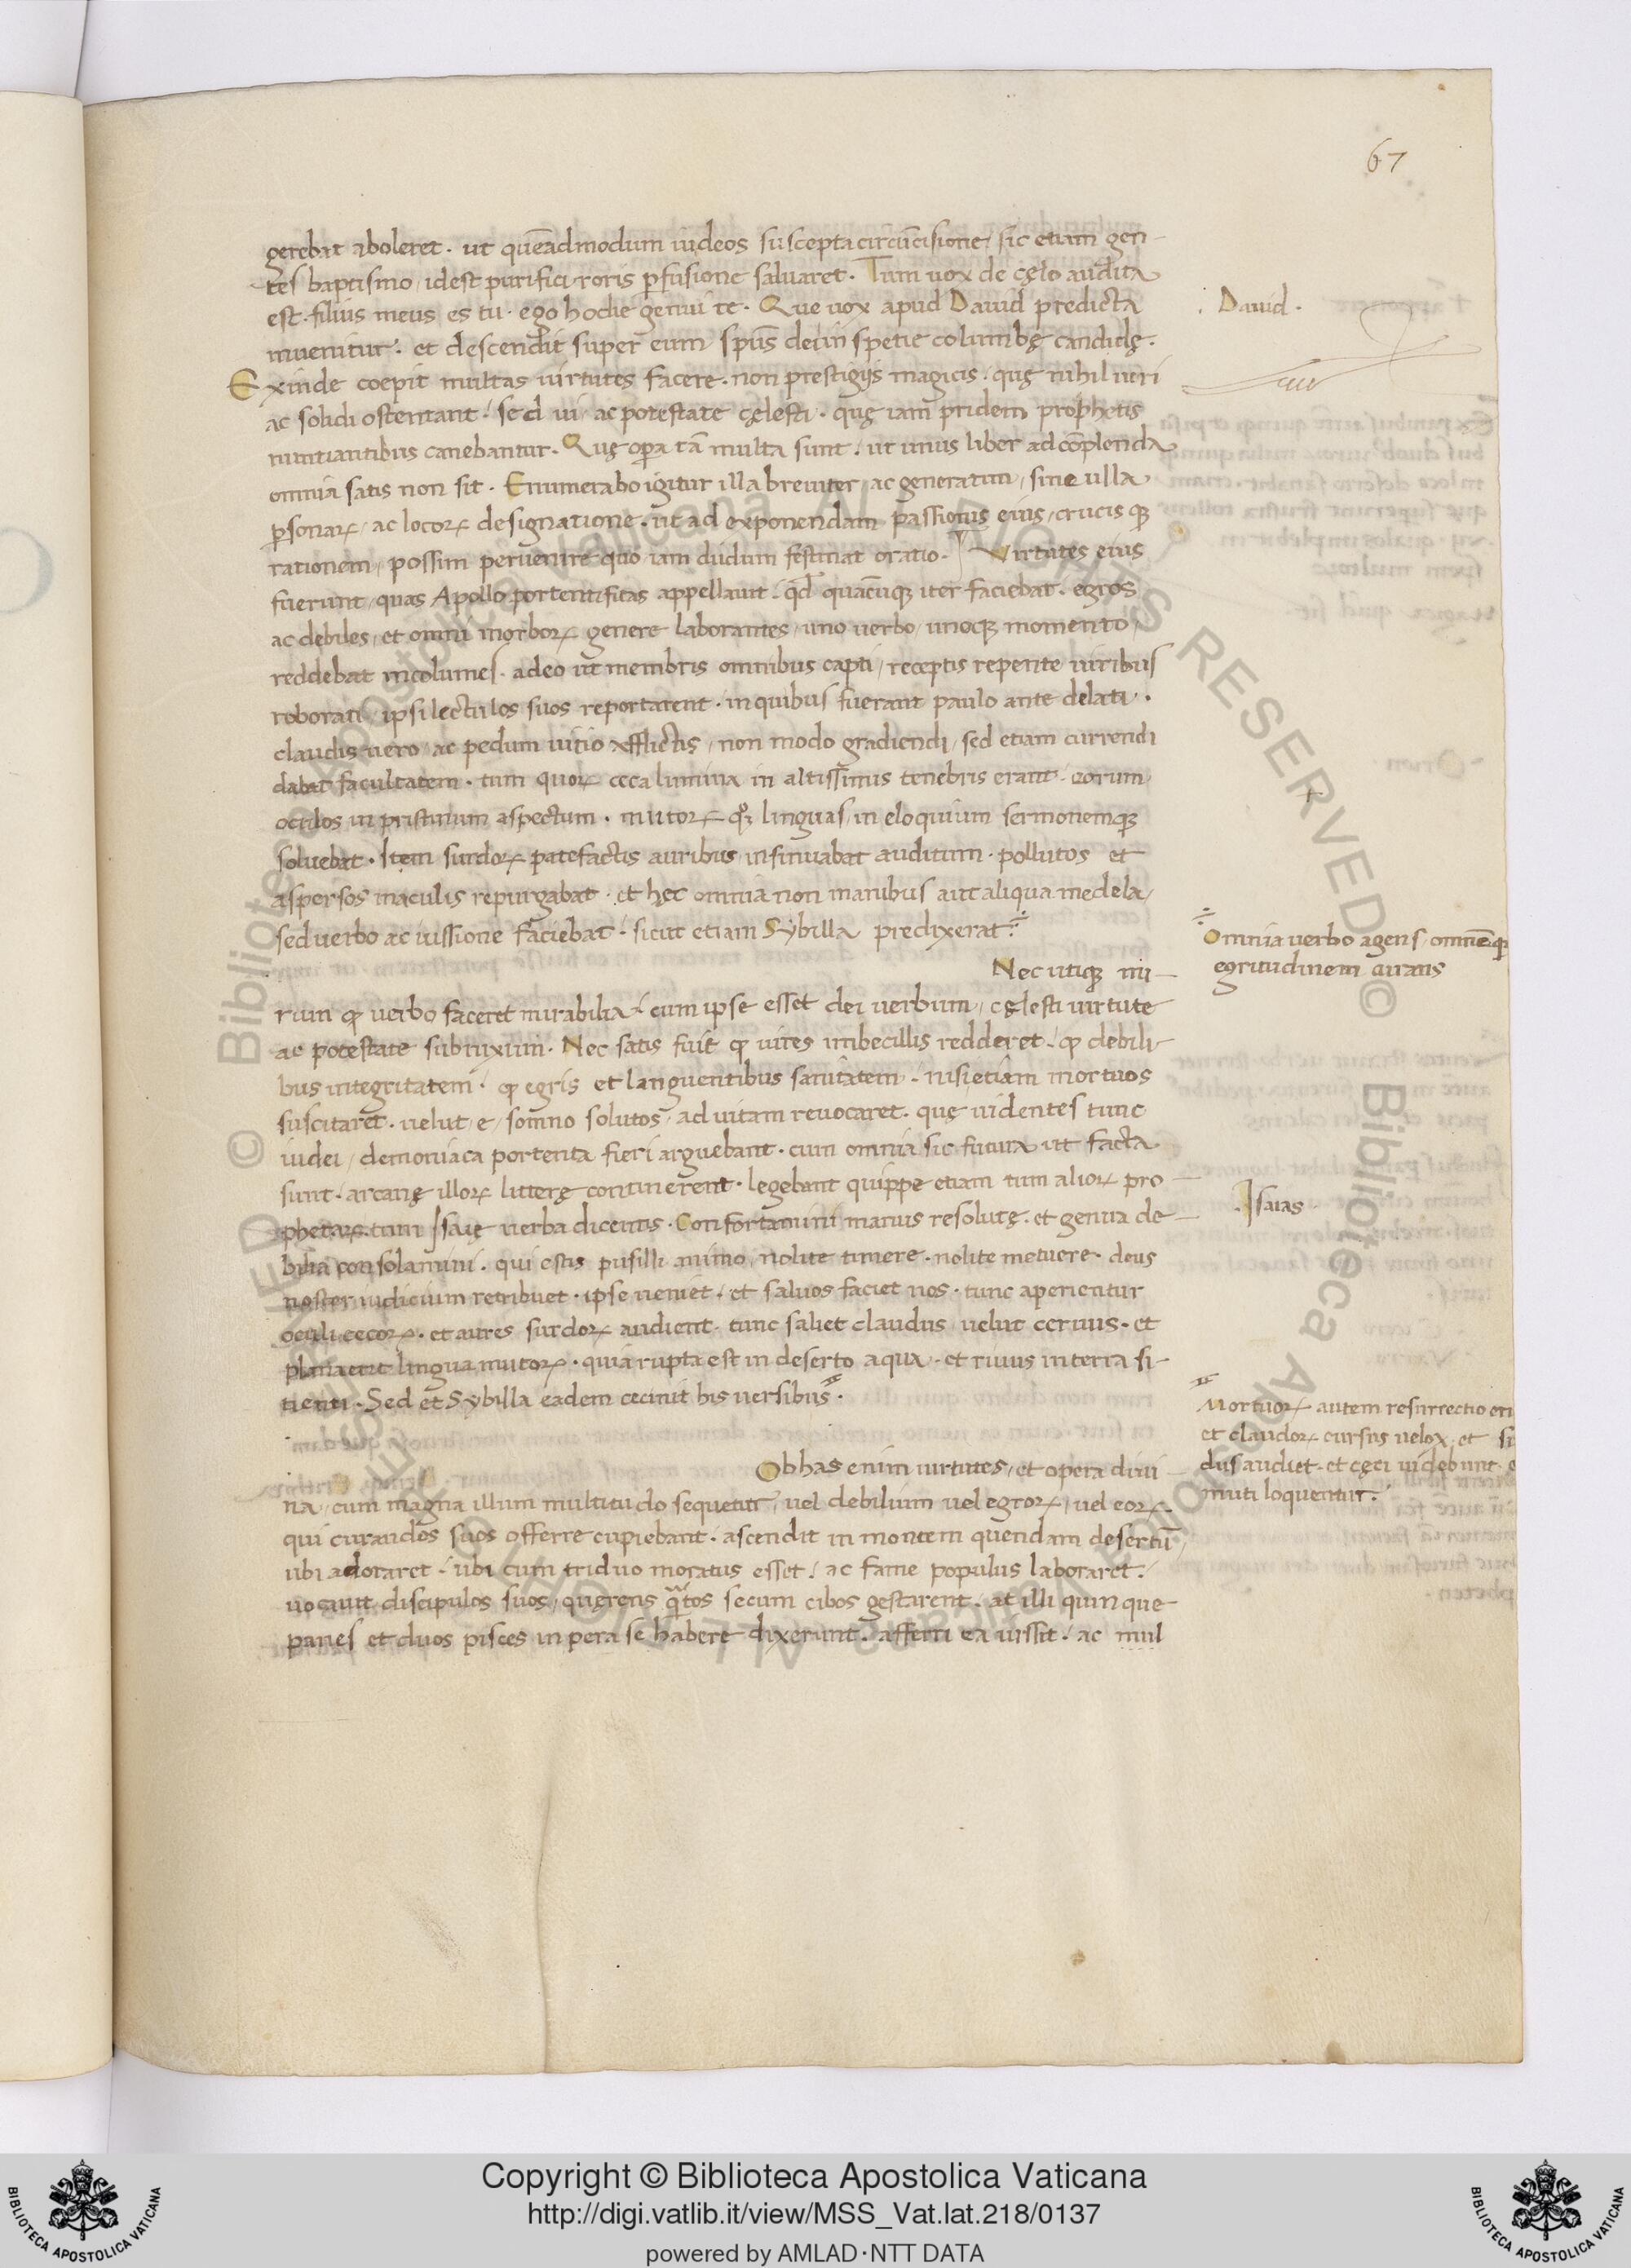 67
gerebat aboleret. ut quēadmodum iudeos suscepta circūcisione, sic etiam gen-
tes baptismo, idest purifici roris ꝑfusione saluaret. Tum uox de cęlo audita
est. filius meus es tu. ego hodie genui te. Que uox apud Dauid predicta
inuenitur. et descendit super eum spūs dei in spetie columbę candidę.
Exinde coepit multas uirtutes facere. non prestigijs magicis. quę nihil ueri
ac solidi ostentant. sed ui ac potestate cęlesti. quę iam pridem prophetis
nuntiantibus canebantur. Quę oꝑa tā multa sunt. ut unus liber ad cōplenda
omnia satis non sit. Enumerabo igitur illa breuiter, ac generatim, sine ulla
ꝑsonaꝝ, ac locoꝝ designatione. ut ad exponendam passionis eius, crucis qꝫ
rationem, possim peruenire quo iam dudum festinat oratio. Virtutes eius
fuerunt, quas Apollo portentificas appellauit. qd̄ quacūqꝫ iter faciebat. egros
ac debiles, et omni morboꝝ genere laborantes, uno uerbo, unoqꝫ momento,
reddebat incolumes. adeo ut membris omnibus capti, receptis repente uiribus
roborati, ipsi lectulos suos reportarent. in quibus fuerant paulo ante delati.
claudis uero ac pedum uitio afflictis, non modo gradiendi, sed etiam currendi
dabat facultatem. tum quoꝝ ceca lumina in altissimis tenebris erant. eorum
oculos in pristinum aspectum. mutoꝝ qꝫ linguas, in eloquium sermonemqꝫ
soluebat. Item surdoꝝ patefactis auribus insinuabat auditum. pollutos et
aspersos maculis repurgabat. et hęc omnia non manibus aut aliqua medela,
sed uerbo ac iussione faciebat. sicut etiam Sybilla predixerat.
Nec utiqꝫ mi-
rum ꝙ uerbo faceret mirabilia. cum ipse esset dei uerbum, cęlesti uirtute
ac potestate subnixum. Nec satis fuit ꝙ uires imbecillis redderet. ꝙ debili-
bus integritatem. ꝙ egris et languentibus sanitatem. nisi etiam mortuos
suscitaret. uelut, e, somno solutos, ad uitam reuocaret. quę uidentes tunc
iudei, demoniaca portenta fieri arguebant. cum omnia sic futura ut facta
sunt. arcanę illoꝝ litterę continerent. legebant quippe etiam tum alioꝝ pro-
phetaꝝ. tum Isaię uerba dicentis. Confortamini manus resolutę. et genua de-
bilia consolamini. qui estis pusilli animo, nolite timere. nolite metuere. deus
noster iudicium retribuet. ipse ueniet. et saluos faciet nos. tunc aperientur
oculi cecoꝝ. et aures surdoꝝ audient. tunc saliet claudus uelut ceruus. et
plana erit lingua mutoꝝ. quia rupta est in deserto aqua. et riuus in terra si-
tienti. Sed et Sybilla eadem cecinit his uersibus.
Ob has enim uirtutes, et opera diui-
na, cum magna illum multitudo sequetur, uel debilium uel egroꝝ, uel eoꝝ
qui curandos suos offerre cupiebant. ascendit in montem quendam desertū
ubi adoraret. ubi cum triduo moratus esset. ac fame populus laboraret.
uocauit discipulos suos, quęrens qᵃtos secum cibos gestarent. at illi quinque
panes et duos pisces in pera se habere dixerunt. afferri ea iussit. ac mul
Dauid.
Omnia uerbo agens, omnēqꝫ
egritudinem curans
Isaias
Mortuoꝝ autem resurrectio eri
et claudoꝝ cursus uelox, et su
dus audiet. et cęci uidebunt.
muti loquentur.
© Biblioteca Apostolica Vaticana ALL RIGHTS RESERVED © Biblioteca Apostolica Vaticana ALL RIGHTS RESERVED
BIBLIOTECA APOSTOLICA VATICANA
Copyright © Biblioteca Apostolica Vaticana
http://digi.vatlib.it/view/MSS_Vat.lat.218/0137
powered by AMLAD·NTT DATA
BIBLIOTECA APOSTOLICA VATICANA